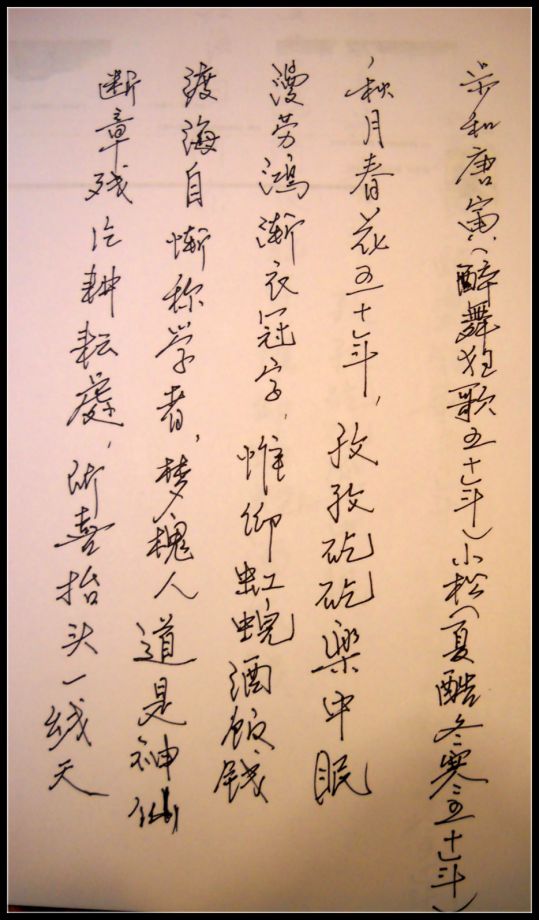 步和唐寅（醉舞狂歌五十年）小松（夏酷冬寒五十年）
秋月春花五十年，孜孜矻矻乐中眠
漫劳鸿渐衣冠字，惟仰虹蜺酒饭钱
渡海自惭称学者，梦槐人道是神仙
断章残 耕耘处，所喜抬头一线天